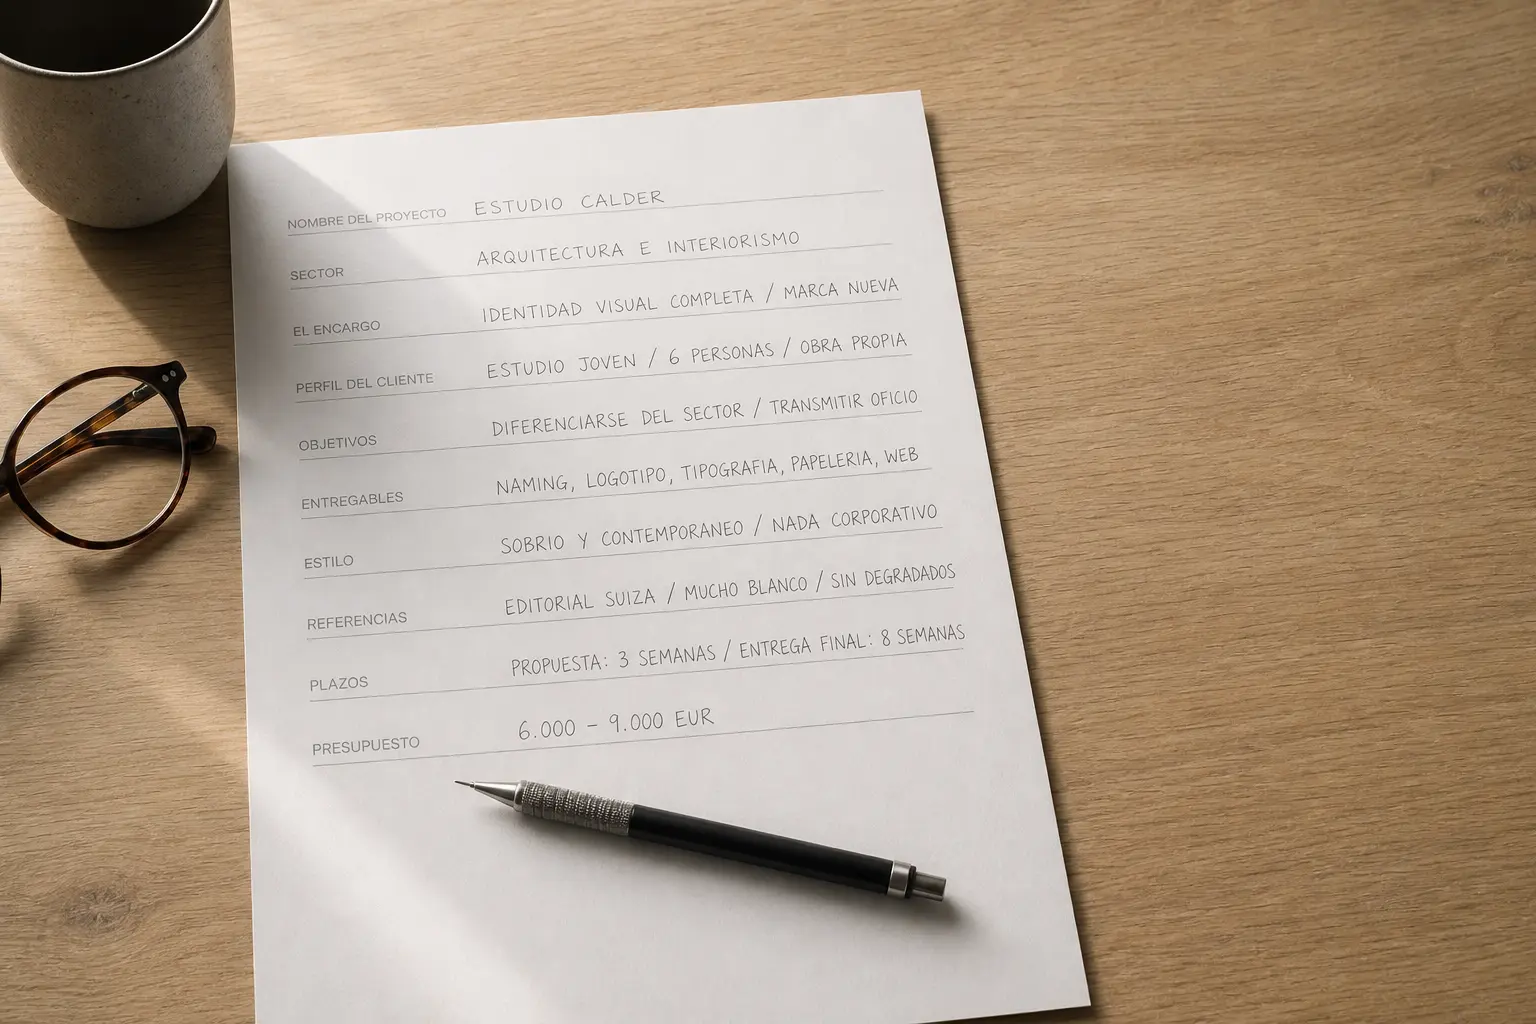 NOMBRE DEL PROYECTO ESTUDIO CALDER
SECTOR ARQUITECTURA E INTERIORISMO
EL ENCARGO IDENTIDAD VISUAL COMPLETA / MARCA NUEVA
PERFIL DEL CLIENTE ESTUDIO JOVEN / 6 PERSONAS / OBRA PROPIA
OBJETIVOS DIFERENCIARSE DEL SECTOR / TRANSMITIR OFICIO
ENTREGABLES NAMING, LOGOTIPO, TIPOGRAFIA, PAPELERIA, WEB
ESTILO SOBRIO Y CONTEMPORANEO / NADA CORPORATIVO
REFERENCIAS EDITORIAL SUIZA / MUCHO BLANCO / SIN DEGRADADOS
PLAZOS PROPUESTA: 3 SEMANAS / ENTREGA FINAL: 8 SEMANAS
PRESUPUESTO 6.000 – 9.000 EUR